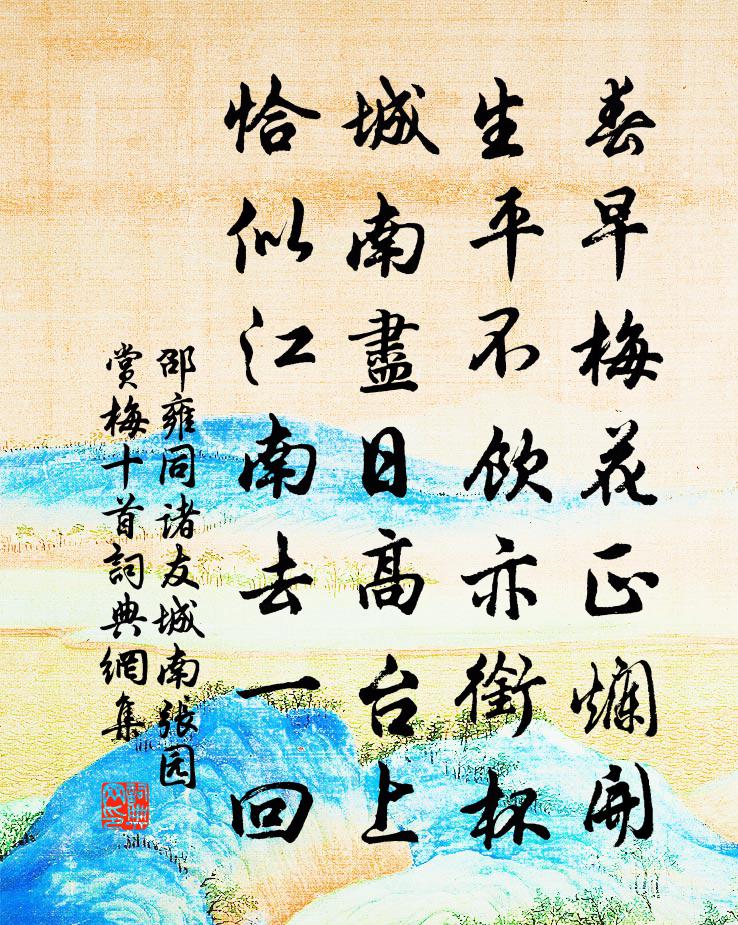 春早梅花正爛開
生平不飲亦銜杯
城南盡日高台上
恰似江南去一回
邵雍同诸友城南張园
赏梅十首詞典網集